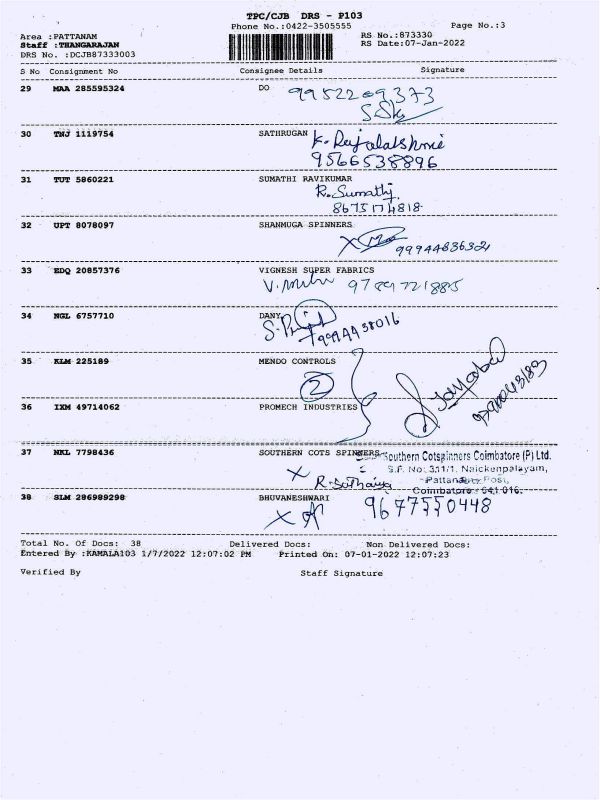 TPC/CJB DRS - P103
Phone No.:0422-3505555
Page No.:3
Area :PATTANAM
RS No.:873330
Staff :THANGARAJAN
RS Date:07-Jan-2022
DRS No. :DCJB87333003
S No Consignment No Consignee Details Signature
29 MAA 285595324 DO
9952209373
30 TNJ 1119754 SATHRUGAN
K. Rajalakshmi
9566538896
31 TUT 5860221 SUMATHI RAVIKUMAR
R. Sumathi
8675174818
32 UPT 8078097 SHANMUGA SPINNERS
X
33 EDQ 20857376 VIGNESH SUPER FABRICS
9789721885
34 NGL 6757710 DANY
35 KLM 225189 MENDO CONTROLS
2
36 IXM 49714062 PROMECH INDUSTRIES
37 NKL 7798436 SOUTHERN COTS SPINNERS
Southern Cotspinners Coimbatore (P) Ltd.
S.F. No: 311/1, Naickenpalayam,
Pattanam Post,
Coimbatore - 641 016.
X
38 SLM 286989298 BHUVANESHWARI
X 9677550448
Total No. Of Docs: 38 Delivered Docs: Non Delivered Docs:
Entered By :KAMALA103 1/7/2022 12:07:02 PM Printed On: 07-01-2022 12:07:23
Verified By Staff Signature